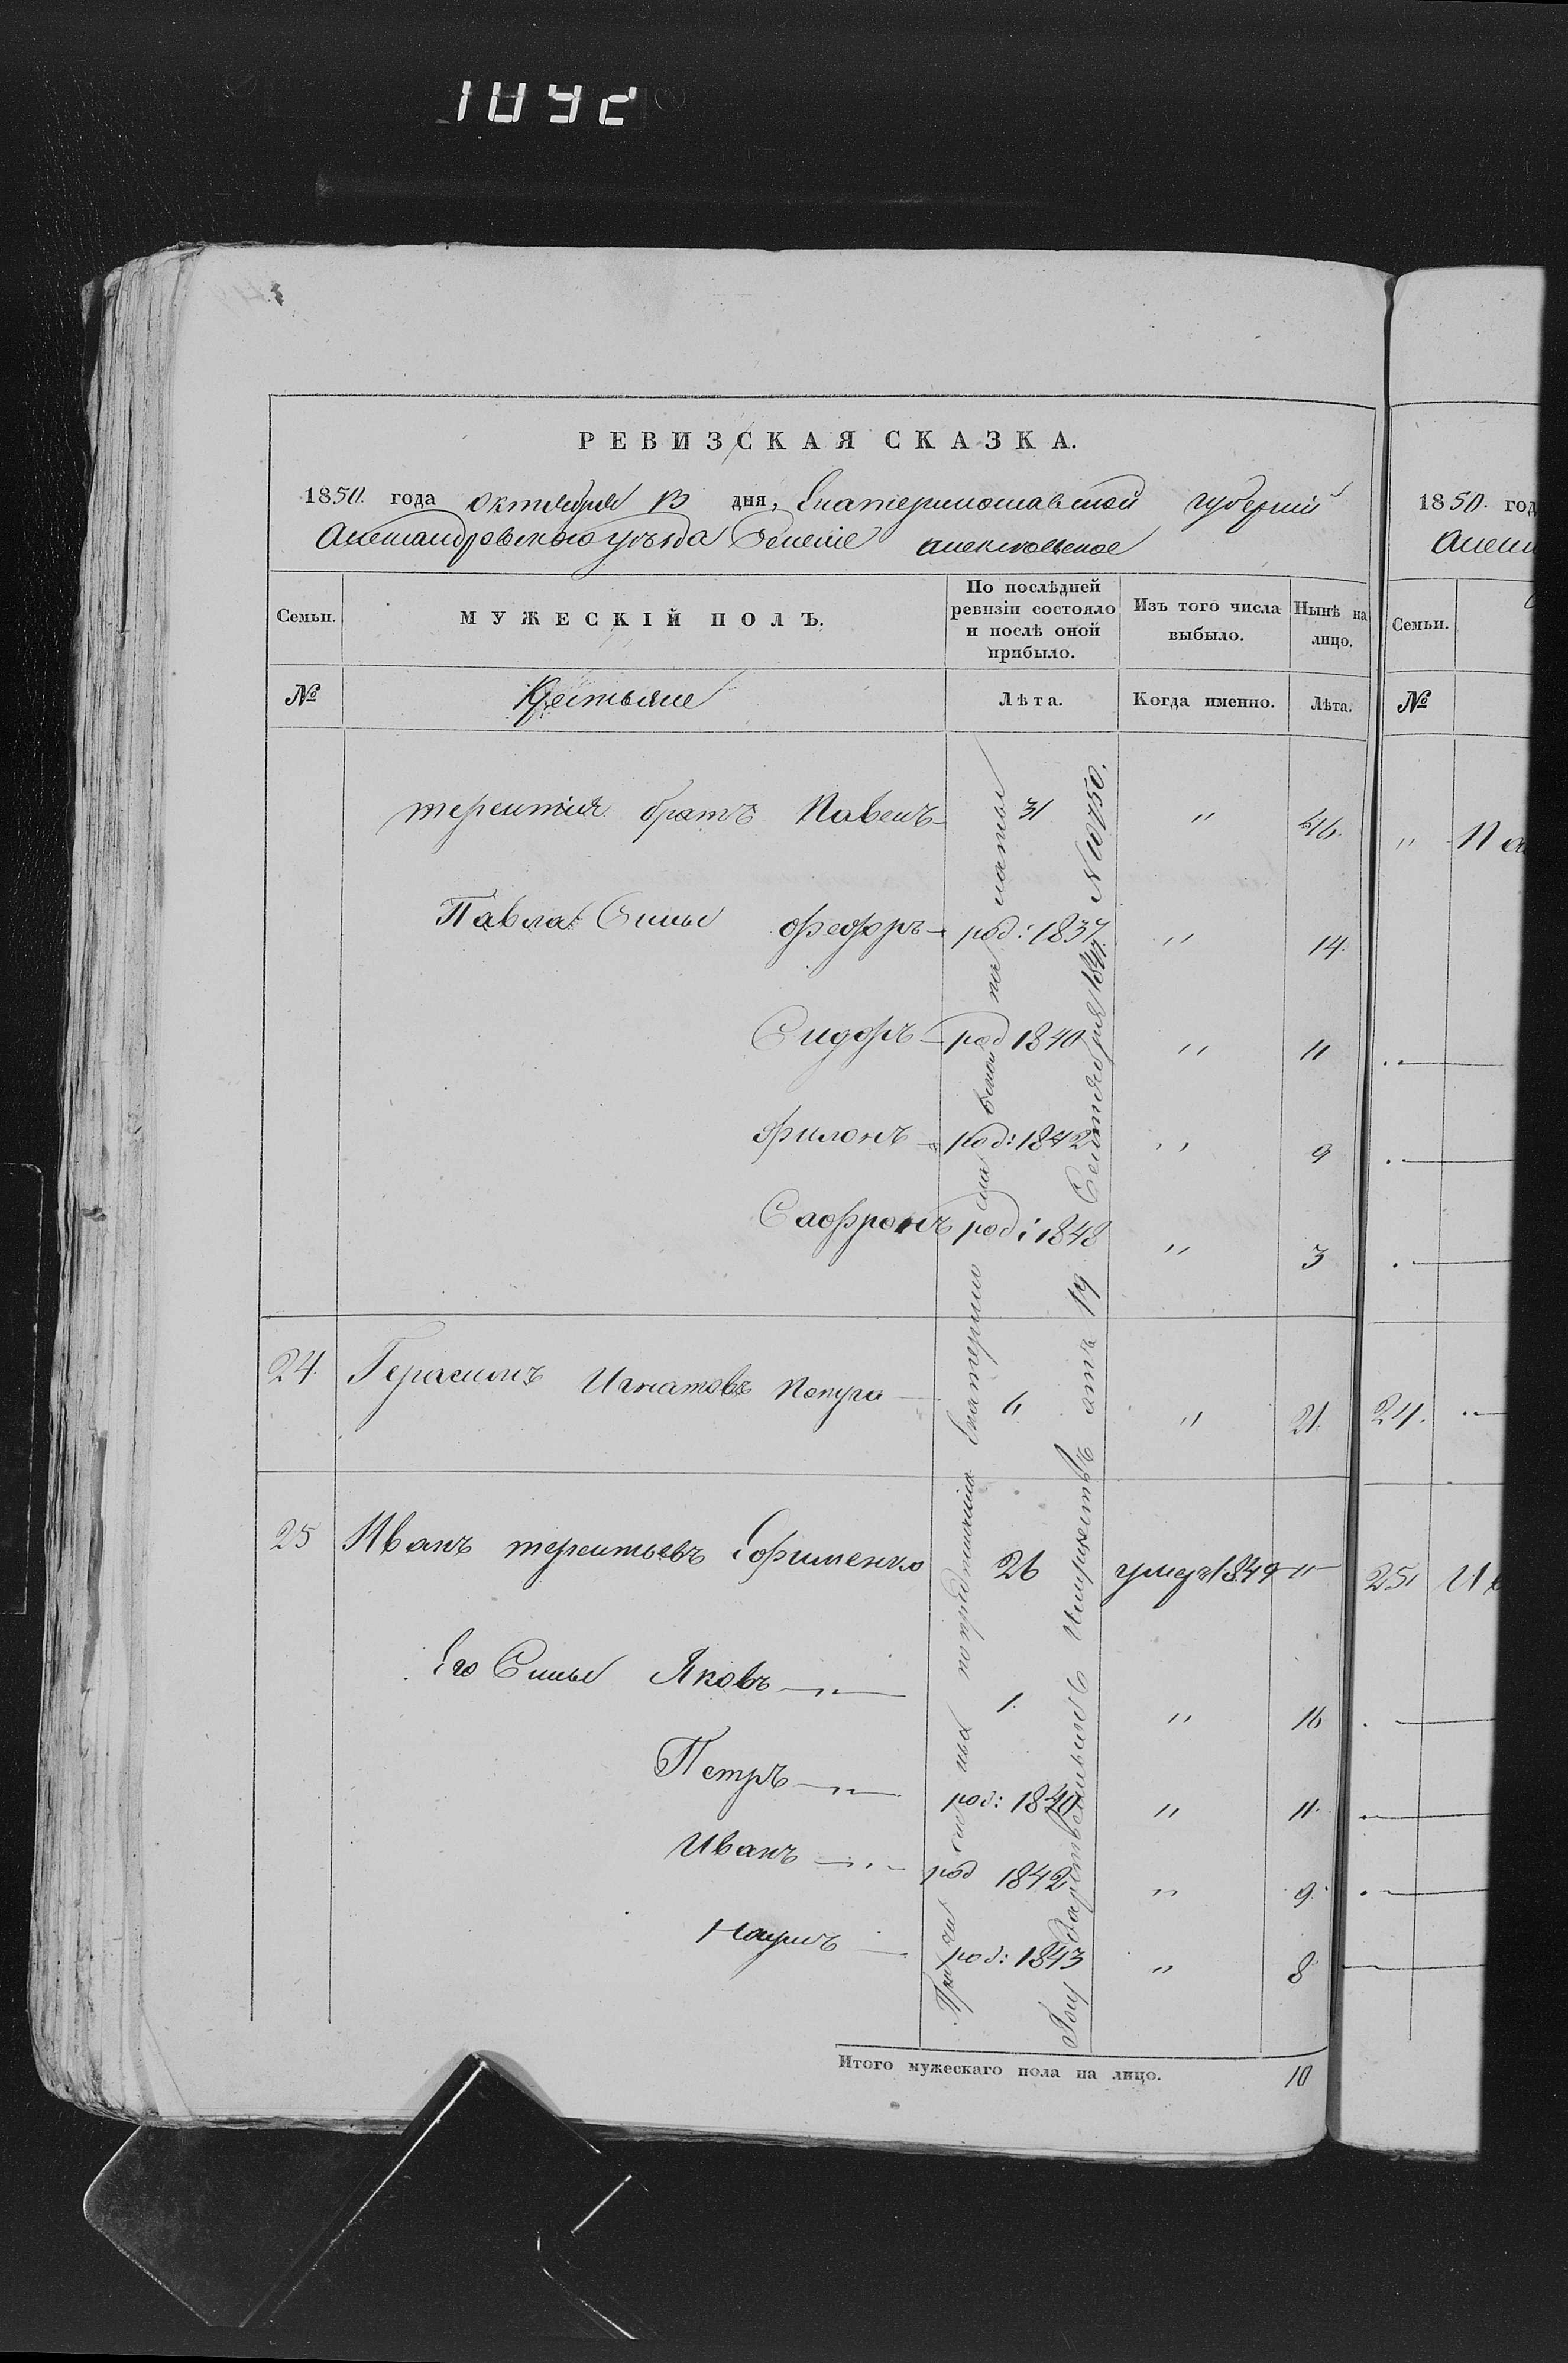 1092
РЕВИЗСКАЯ СКАЗКА.
1850. года октября 13 дня, Екатеринославской губерніи
Александровскаго уѣзда Селеніе
Семьи. МУЖЕСКІЙ ПОЛЪ. По послѣдней ревизіи состояло и послѣ оной прибыло. Изъ того числа выбыло. Нынѣ на лицо.
№ Крестьяне Лѣта. Когда именно. Лѣта.
терентия братъ Павелъ 31 " 46.
Павла Сины Федоръ род: 1837 " 14.
Сидоръ род 1840 " 11
Филонъ род: 1842 " 9
Сафронъ род: 1848 " 3
24. Герасимъ Игнатовъ Попуга " " 21.
25 Иванъ терентьевъ Ефименко 26 умер 1849 "
Его Сины Яковъ — " — 1. " 16
Петръ — " — род: 1840 " 11.
Иванъ — " — род 1842 " 9.
Наумъ — род: 1843 " 8
Причислены по предписанию Екатеринославской палаты
Государственныхъ Имуществъ отъ 19 Сентября 1847. № 10750.
Итого мужескаго пола на лицо. 10
1850. год
Семьи.
№
"
24.
25,